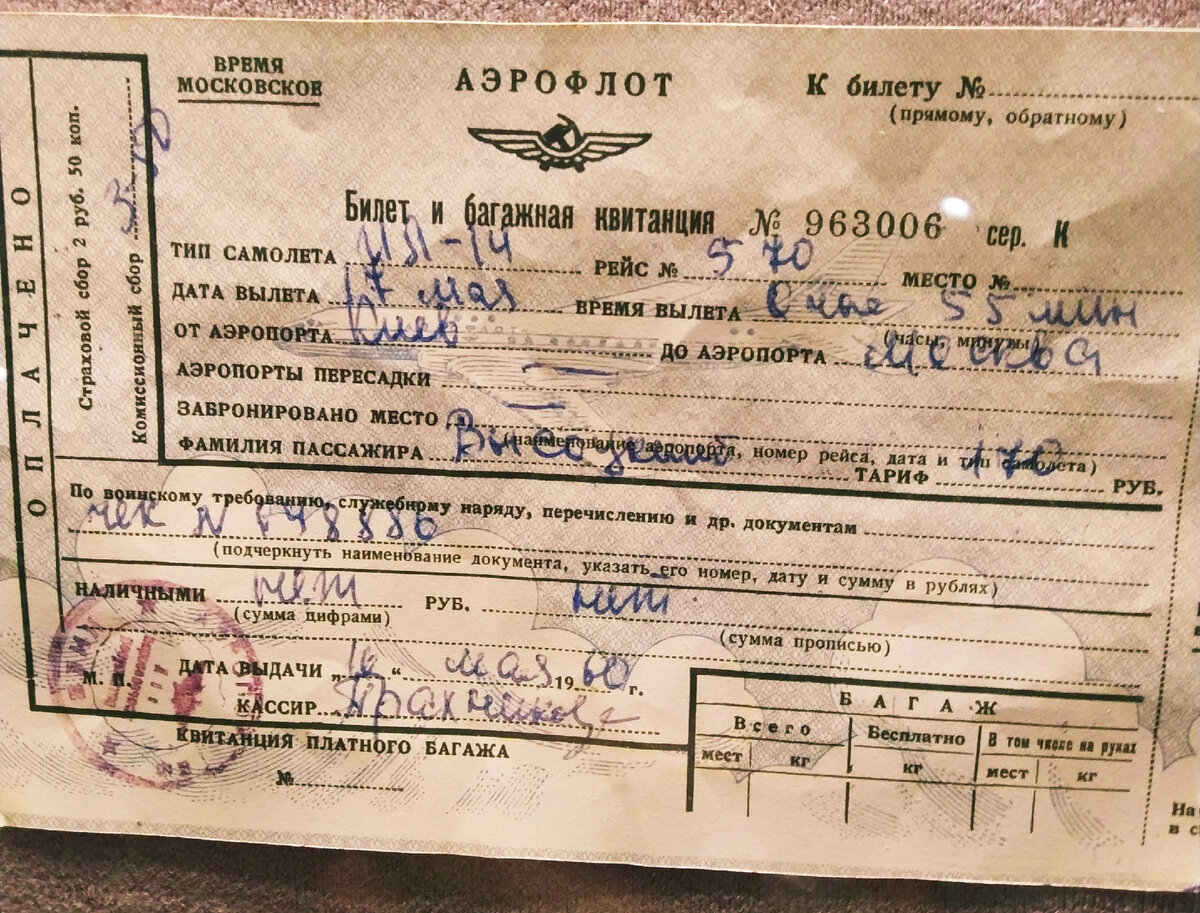 ВРЕМЯ
МОСКОВСКОЕ
АЭРОФЛОТ
К билету №
(прямому, обратному)
ОПЛАЧЕНО
Страховой сбор 2 руб. 50 коп.
Комиссионный сбор
Билет и багажная квитанция № 963006 сер. К
ТИП САМОЛЕТА ИЛ-14 РЕЙС № 570 МЕСТО №
ДАТА ВЫЛЕТА 17 мая ВРЕМЯ ВЫЛЕТА 0 час 55 мин
(часы, минуты)
ОТ АЭРОПОРТА Киев ДО АЭРОПОРТА Москва
АЭРОПОРТЫ ПЕРЕСАДКИ —
ЗАБРОНИРОВАНО МЕСТО —
(наименование аэропорта, номер рейса, дата и тип самолета)
ФАМИЛИЯ ПАССАЖИРА Высоцкий ТАРИФ 170 РУБ.
По воинскому требованию, служебному наряду, перечислению и др. документам
чек N 148886
(подчеркнуть наименование документа, указать его номер, дату и сумму в рублях)
НАЛИЧНЫМИ нет РУБ. нет
(сумма цифрами)
(сумма прописью)
М. П.
ДАТА ВЫДАЧИ „16“ мая 1960 г.
КАССИР
КВИТАНЦИЯ ПЛАТНОГО БАГАЖА
№
БАГАЖ
Всего Бесплатно В том числе на руках
мест кг кг мест кг
На
в с